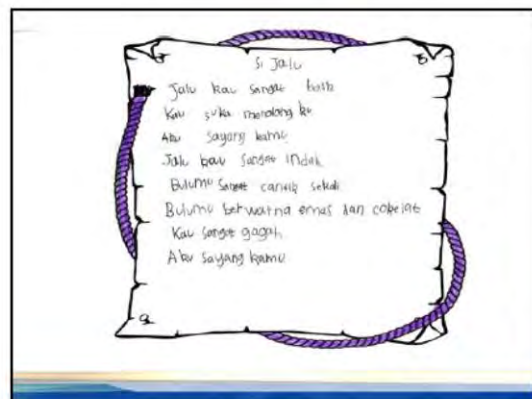 Si Jalu
Jalu kau sangat baik
Kau suka menolong ku
Aku sayang kamu
Jalu kau sangat indah
Bulumu sangat cantik sekali
Bulumu berwarna emas dan cokelat
Kau sangat gagah
Aku sayang kamu